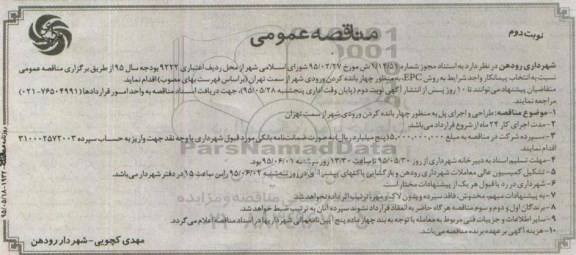 نوبت دوم
مناقصه عمومی
شهرداری رودهن در نظر دارد به استناد مجوز شماره ۹/۱۲/۵۱/ش مورخ ۹۵/۰۲/۲۷ شورای اسلامی شهر از محل ردیف اعتباری ۹۲۲۲ بودجه سال ۹۵ از طریق برگزاری مناقصه عمومی
نسبت به انتخاب پیمانکار واجد شرایط به روش EPC، به منظور چهار بانده کردن ورودی شهر از سمت تهران (براساس فهرست بهای مصوب) اقدام نماید.
متقاضیان پیشنهاد می‌توانند تا ۱۰ روز پس از انتشار آگهی نوبت دوم (پایان وقت اداری پنجشنبه ۹۵/۰۵/۲۸)، جهت دریافت اسناد مناقصه به واحد امور قراردادها (۷۶۵۰۴۹۹۱-۰۲۱)
مراجعه نمایند.
۱-موضوع مناقصه: طراحی و اجرای پل به منظور چهار بانده کردن ورودی شهر از سمت تهران
۲- مدت اجرای کار ۲۴ ماه از شروع قرارداد می‌باشد.
۳-سپرده شرکت در مناقصه به مبلغ ۵,۰۰۰,۰۰۰,۰۰۰ (پنج میلیارد ریال) به صورت ضمانت‌نامه بانکی مورد قبول شهرداری یا وجه نقد جهت واریز به حساب سپرده ۳۱۰۰۰۲۵۷۲۰۰۳
اقدام نمایند.
۴-مهلت تسلیم اسناد به دبیرخانه شهرداری از روز ۹۵/۰۵/۳۰ تا ساعت ۱۳/۳۰ روز ۹۵/۰۶/۰۱ بود.
۵- تشکیل کمیسیون عالی معاملات شهرداری رودهن و بازگشایی پاکتهای پیشنهادی در روز سه‌شنبه ۹۵/۰۶/۰۲ راس ساعت ۱۵ در دفتر شهردار می‌باشد.
۶- شهرداری در رد یا قبول هر یک از پیشنهادات مختار است.
۷- به پیشنهادات مبهم، مخدوش، فاقد سپرده و بدون لاک و مهر ترتیب اثر داده نخواهد شد.
۸-برندگان اول و دوم و سوم مناقصه هرگاه حاضر به انعقاد قرارداد نشوند سپرده آنان به ترتیب ضبط خواهد شد.
۹- سایر اطلاعات و جزییات فنی مربوط به معامله با توجه به بند چهار ماده پنج آیین‌نامه مالی شهرداریها در اسناد مناقصه اعلام می‌گردد.
۱۰- هزینه آگهی بر عهده برنده مناقصه می‌باشد.
مهدی کچویی- شهردار رودهن
ParsNamadData